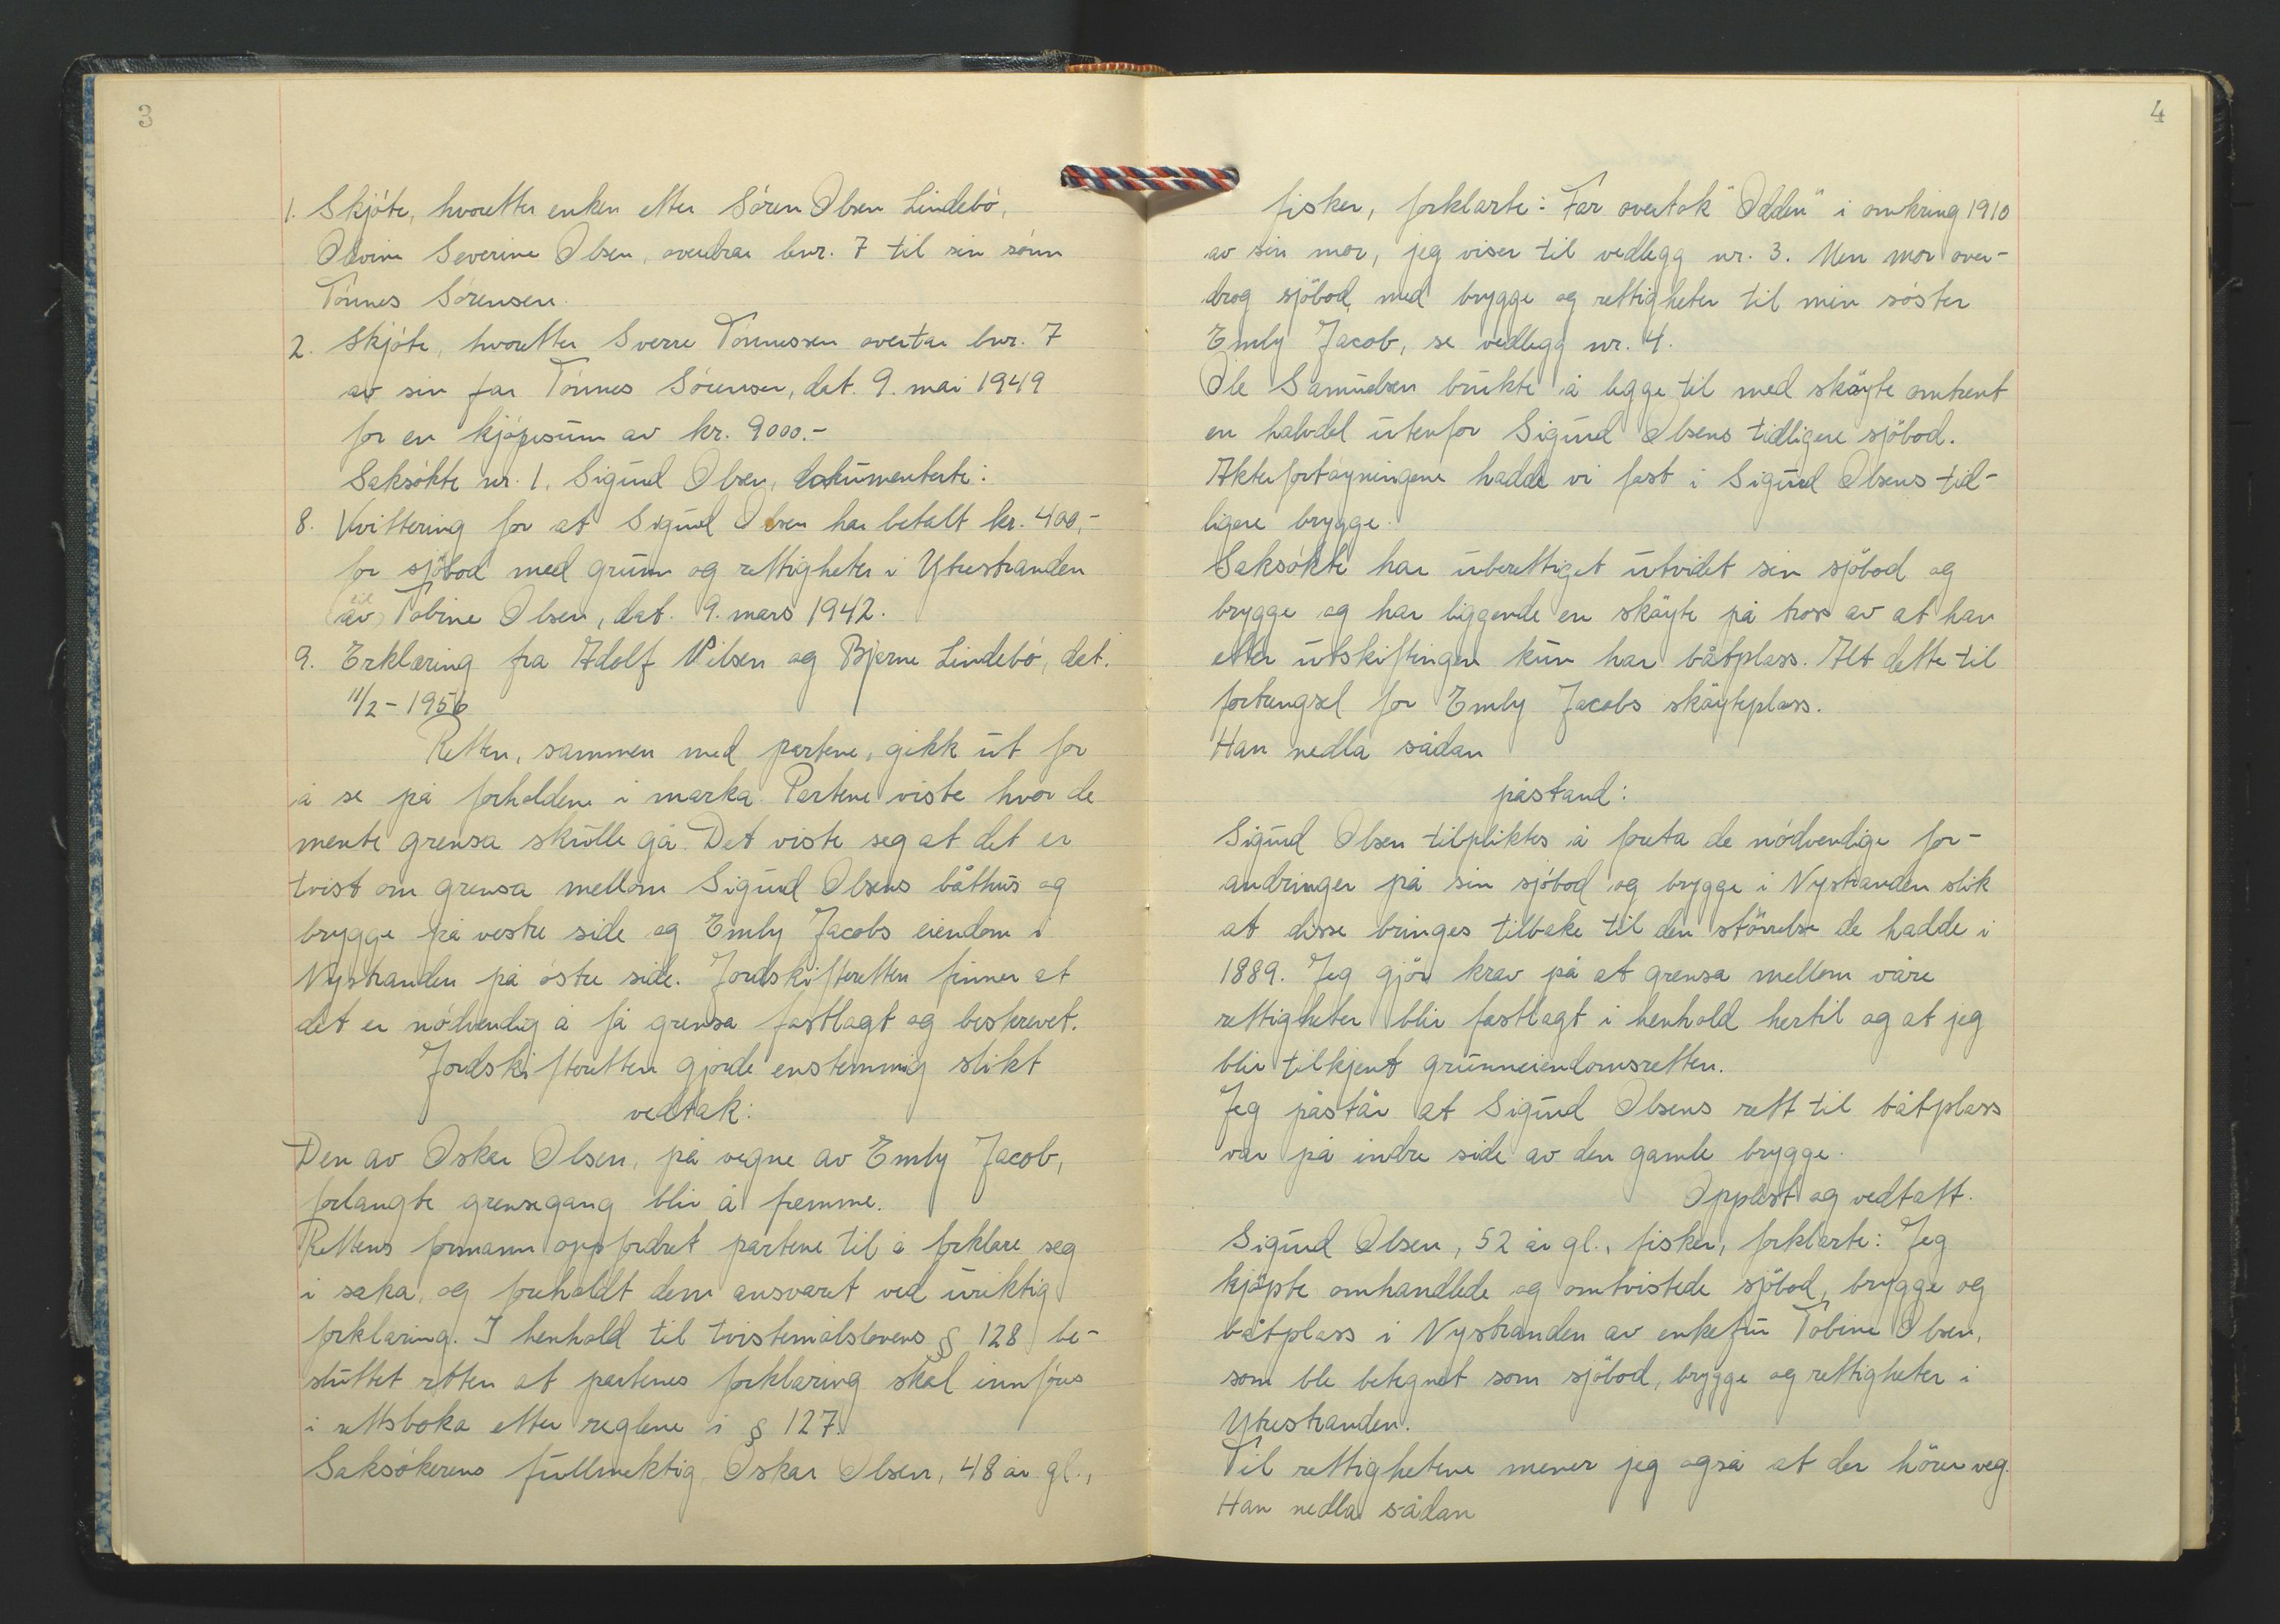 3
1. Skjöte, hvoretter enken etter Sören Olsen Lindebö,
Olevine Severine Olsen, overdrar bnr. 7 til sin sönn
Tönnes Sörensen.
2. Skjöte, hvoretter Sverre Tönnessen overtar bnr. 7
av sin far Tönnes Sörensen, dat. 9. mai 1949
for en kjöpesum av kr. 9000.-
Saksökte nr. 1, Sigurd Olsen, dokumenterte:
8. Kvittering for at Sigurd Olsen har betalt kr. 400,-
for sjöbod med grunn og rettigheter i Ytrestranden
til
(av) Tobine Olsen, dat. 9. mars 1942.
9. Erklæring fra Adolf Nilsen og Bjarne Lindebö, dat.
11/2-1956
Retten, sammen med partene, gikk ut for
å se på forholdene i marka. Partene viste hvor de
mente grensa skulle gå. Det viste seg at det er
tvist om grensa mellom Sigurd Olsens båthus og
brygge på vestre side og Emly Jacobs eiendom i
Nystranden på östre side. Jordskifteretten finner at
det er nödvendig å få grensa fastlagt og beskrevet.
Jordskifteretten gjorde enstemmig slikt
vedtak:
Den av Oskar Olsen, på vegne av Emly Jacob,
forlangte grensegang blir å fremme.
Rettens formann oppfordret partene til å forklare seg
i saka, og foreholdt dem ansvaret ved uriktig
forklaring. I henhold til tvistemålslovens § 128 be-
sluttet retten at partenes forklaring skal innföres
i rettsboka etter reglene i § 127.
Saksökerens fullmektig Oskar Olsen, 48 år gl.,
4
fisker, forklarte: Far overtok "Odden" i omkring 1910
av sin mor, jeg viser til vedlegg nr. 3. Men mor over-
drog sjöbod med brygge og rettigheter til min söster
Emly Jacob, se vedlegg nr. 4.
Ole Samuelsen brukte å legge til med sköyte omtrent
en halvdel utenfor Sigurd Olsens tidligere sjöbod.
Akterfortöyningene hadde vi fast i Sigurd Olsens tid-
ligere brygge.
Saksökte har uberettiget utvidet sin sjöbod og
brygge og har liggende en sköyte på tross av at han
etter utskiftingen kun har båtplass. Alt dette til
fortrengsel for Emly Jacobs sköyteplass.
Han nedla sådan
påstand:
Sigurd Olsen tilpliktes å foreta de nödvendige for-
andringer på sin sjöbod og brygge i Nystranden slik
at disse bringes tilbake til den störrelse de hadde i
1889. Jeg gjör krav på at grensa mellom våre
rettigheter blir fastlagt i henhold hertil og at jeg
blir tilkjent grunneiendomsretten.
Jeg påstår at Sigurd Olsens rett til båtplass
var på indre side av den gamle brygge.
Opplest og vedtatt.
Sigurd Olsen, 52 år gl., fisker, forklarte: Jeg
kjöpte omhandlede og omtvistede sjöbod, brygge og
båtplass i Nystranden av enkefru Tobine Olsen,
som ble betegnet som sjöbod, brygge og rettigheter i
Ytrestranden.
Til rettighetene mener jeg også at der hörer veg.
Han nedla sådan